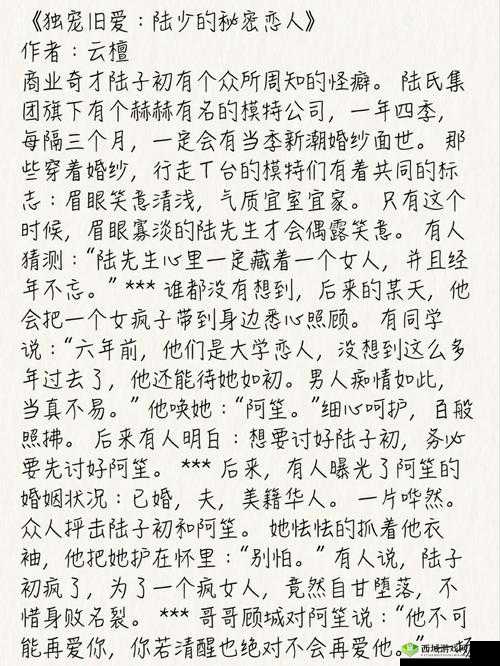 《独宠旧爱：陆少的秘密恋人》
作者：云檀
商业奇才陆子初有个众所周知的怪癖。 陆氏集
团旗下有个赫赫有名的模特公司，一年四季，
每隔三个月，一定会有当季新潮婚纱面世。 那
些穿着婚纱，行走丅台的模特们有着共同的标
志：眉眼笑意清浅，气质宜室宜家。 只有这个
时候，眉眼寡淡的陆先生才会偶露笑意。 有人
猜测：“陆先生心里一定藏着一个女人，并且经
年不忘。” *** 谁都没有想到，后来的某天，他
会把一个女疯子带到身边悉心照顾。 有同学
说：“六年前，他们是大学恋人，没想到这么多
年过去了，他还能待她如初。男人痴情如此，
当真不易。” 他唤她：“阿笙。”细心呵护，百般
照拂。 后来有人明白：想要讨好陆子初，务必
要先讨好阿笙。 *** 后来，有人曝光了阿笙的
婚姻状况：已婚，夫，美籍华人。 一片哗然。
众人抨击陆子初和阿笙。 她怯怯的抓着他衣
袖，他把她护在怀里：“别怕。” 有人说，陆子
初疯了，为了一个疯女人，竟然自甘堕落，不
惜身败名裂。 *** 哥哥顾城对阿笙说：“他不可
能再爱你，你若清醒也绝对不会再爱他。”
西域游戏网